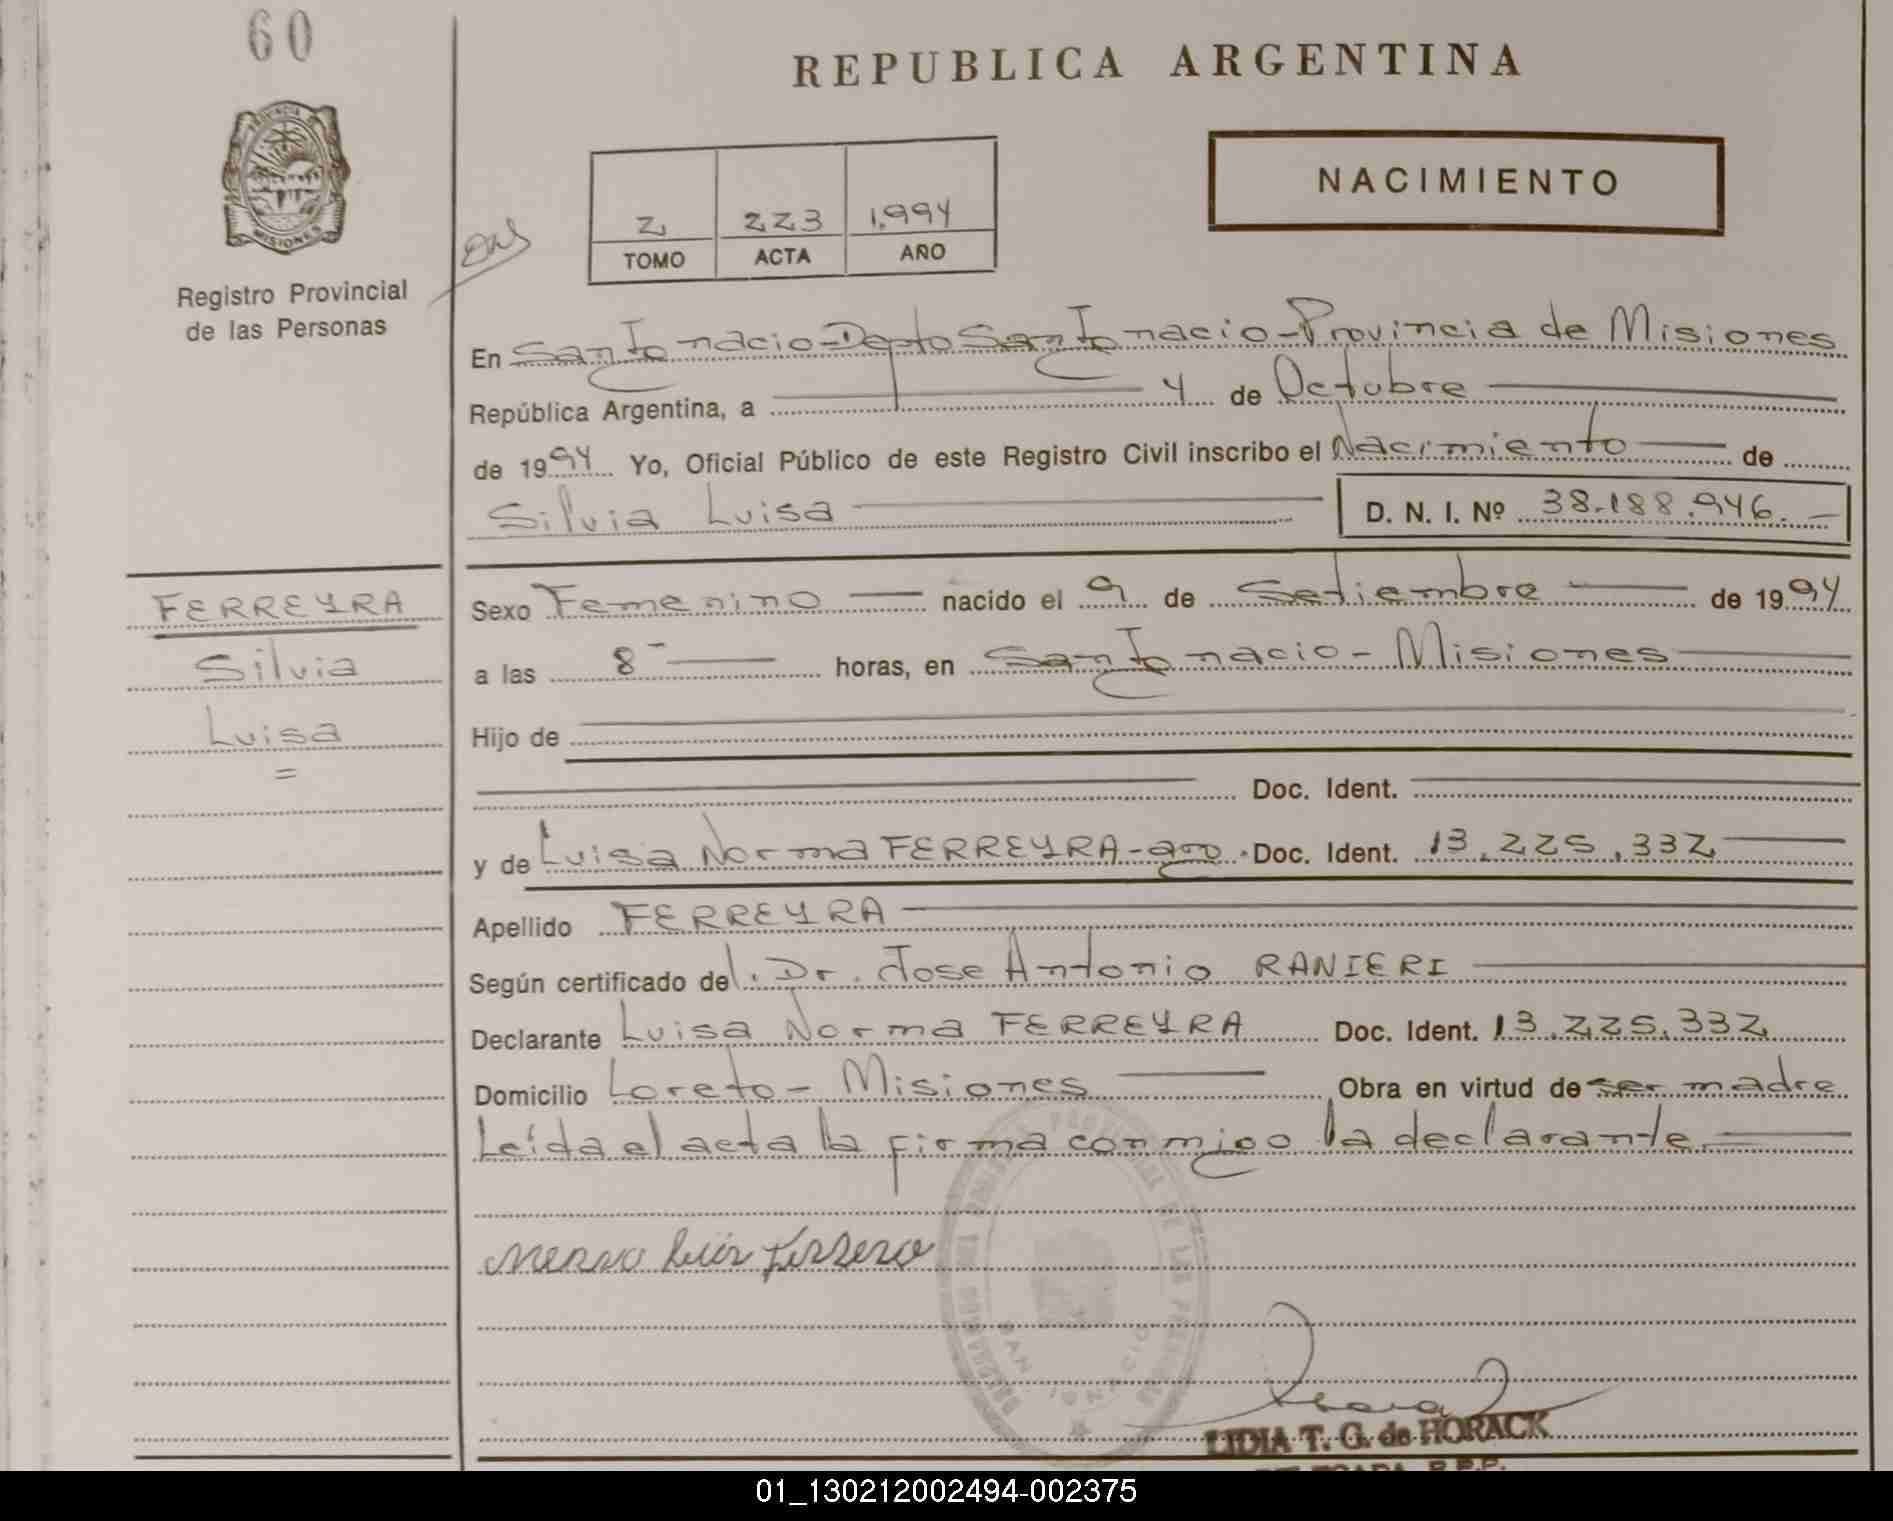 60
REPUBLICA ARGENTINA
PROVINCIA
MISIONES
Registro Provincial
de las Personas
2 223 1.994
TOMO ACTA AÑO
NACIMIENTO
En San Ignacio-Depto San Ignacio-Provincia de Misiones
República Argentina, a 4 de Octubre
de 1994 Yo, Oficial Público de este Registro Civil inscribo el Nacimiento de
Silvia Luisa D. N. I. Nº 38.188.946.-
FERREYRA
Silvia
Luisa
=
Sexo Femenino nacido el 9 de Setiembre de 1994
a las 8 horas, en San Ignacio - Misiones
Hijo de
Doc. Ident.
y de Luisa Norma FERREYRA-arg. Doc. Ident. 13.225.332
Apellido FERREYRA
Según certificado del. Dr. Jose Antonio RANIERI
Declarante Luisa Norma FERREYRA Doc. Ident. 13.225.332
Domicilio Loreto - Misiones Obra en virtud de ser madre
Leída el acta la firma conmigo la declarante.
PROVINCIAL DE LAS PERSONAS
SAN IGNACIO
LIDIA T. G. de HORACK
DELEGADA R.P.P.
01_130212002494-002375